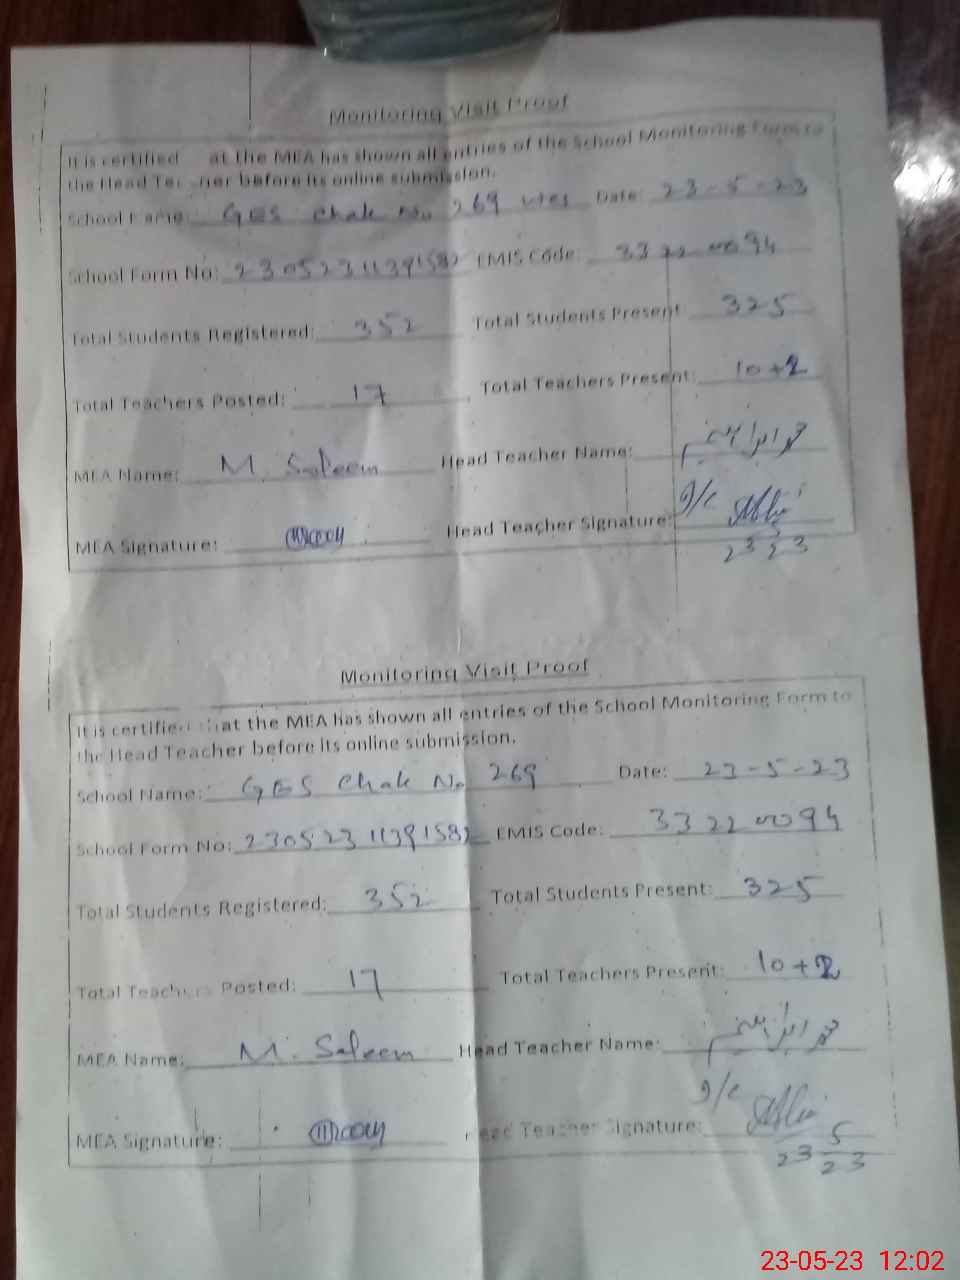 Monitoring Visit Proof
It is certified at the MEA has shown all entries of the School Monitoring Form to
the Head Teacher before its online submission.
School Name: GES Chak No 269 Date: 23-5-23
School Form No: 23052311391582 EMIS Code: 33220094
Total Students Registered: 352 Total Students Present: 325
Total Teachers Posted: 17 Total Teachers Present: 10+2
MEA Name: M. Saleem Head Teacher Name:
MEA Signature: Head Teacher Signature: I/c
23 5 23
Monitoring Visit Proof
It is certified that the MEA has shown all entries of the School Monitoring Form to
the Head Teacher before its online submission.
School Name: GES Chak No 269 Date: 23-5-23
School Form No: 23052311391582 EMIS Code: 33220094
Total Students Registered: 352 Total Students Present: 325
Total Teachers Posted: 17 Total Teachers Present: 10+2
MEA Name: M. Saleem Head Teacher Name:
MEA Signature: Head Teacher Signature: I/c
23 5 23
23-05-23 12:02